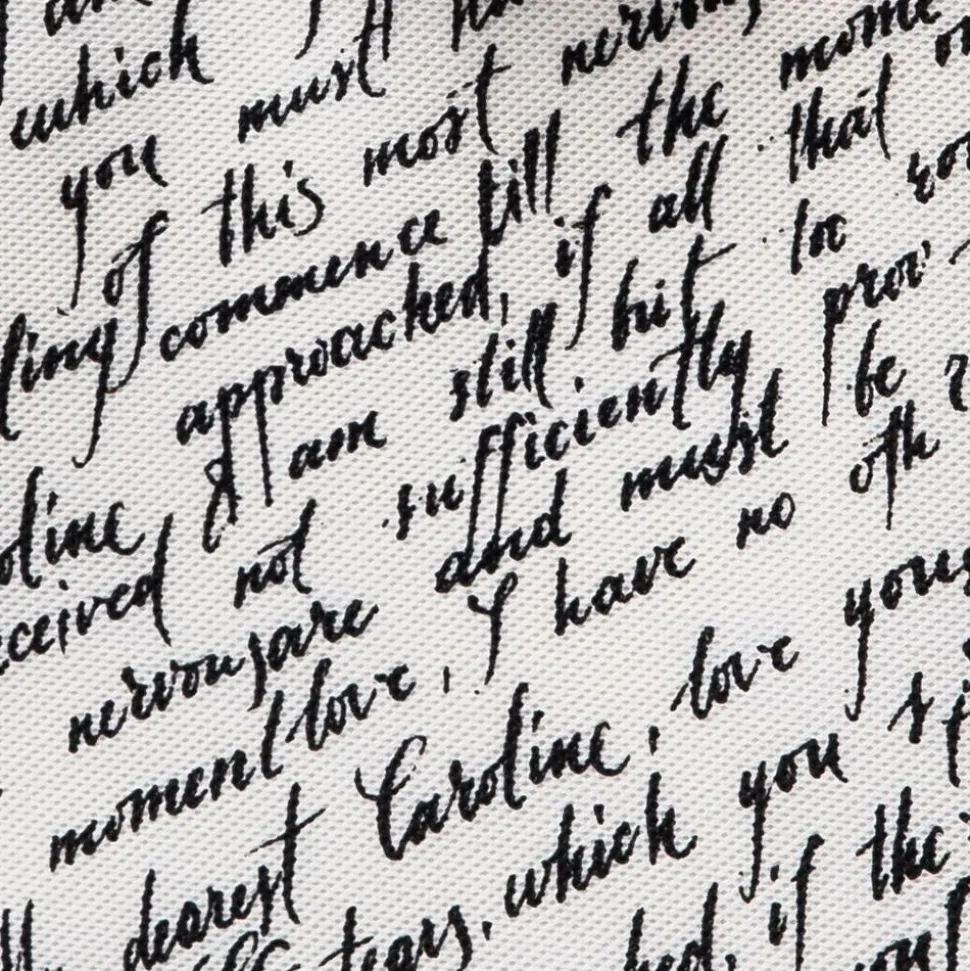 which
you must
of this most nervous
ling commence till the mome
approached, if all that on
oline & am still but to you
ceived not sufficiently prov
nervous are and must be
moment love, I have no oth
dearest Caroline, love your
tears, which you
hed, if the